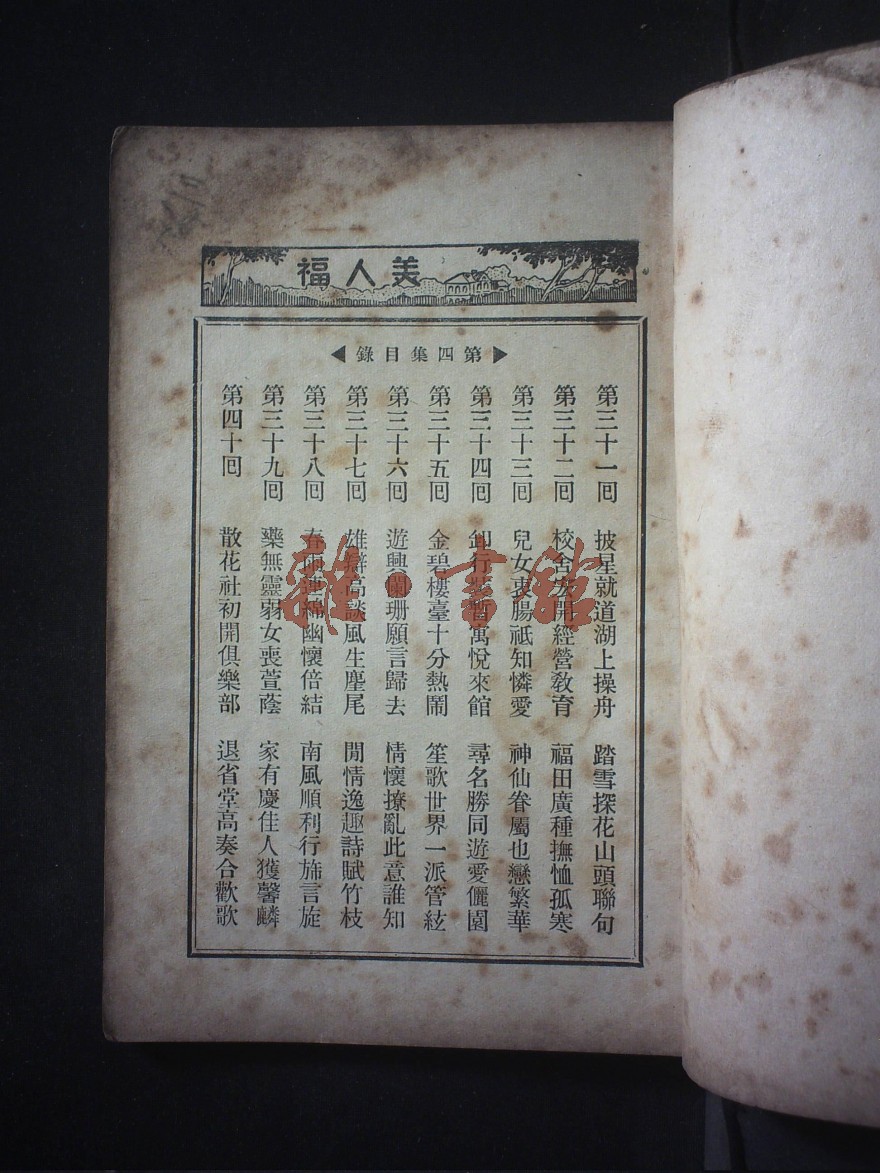 美人福
第四集目錄
第三十一回 披星就道湖上操舟 踏雪探花山頭聯句
第三十二回 校舍宏開經營教育 福田廣種撫恤孤寒
第三十三回 兒女衷腸祗知憐愛 神仙眷屬也戀繁華
第三十四回 卸行裝暫寓悅來館 尋名勝同遊愛儷園
第三十五回 金碧樓臺十分熱鬧 笙歌世界一派管絃
第三十六回 遊興闌珊願言歸去 情懷撩亂此意誰知
第三十七回 雄辯高談風生麈尾 閒情逸趣詩賦竹枝
第三十八回 春雨連綿幽懷倍結 南風順利行旆言旋
第三十九回 藥無靈弱女喪萱蔭 家有慶佳人獲馨麟
第四十回 散花社初開俱樂部 退省堂高奏合歡歌
雜·書館